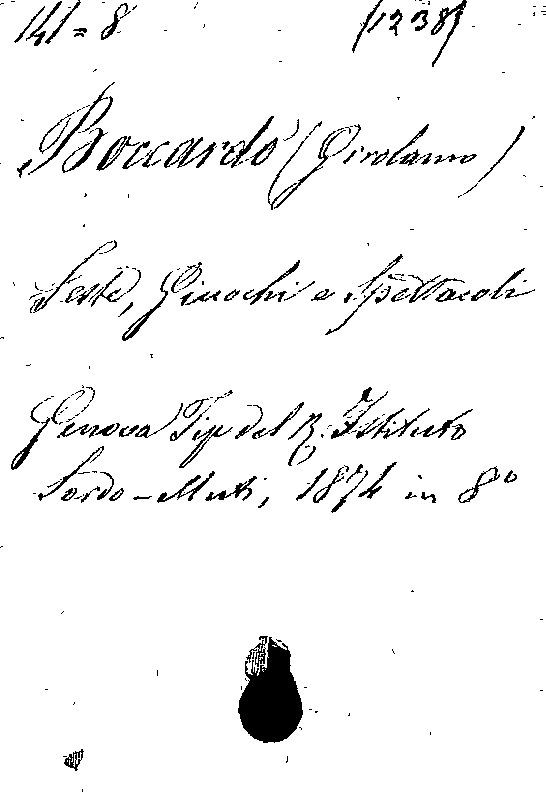 141=8 (1238)
Boccardo (Girolamo)
Feste, Giuochi e Spettacoli
Genova Tip del R. Istituto
Sordo-Muti, 1874 in 8°